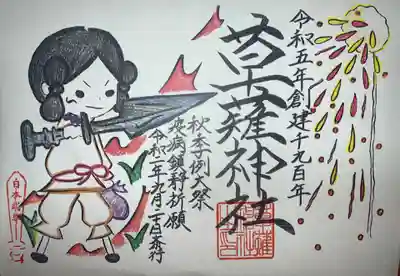 令和五年創建千九百年
草薙神社
秋季例大祭
疫病鎮静祈願
令和二年九月二十日
日本武尊